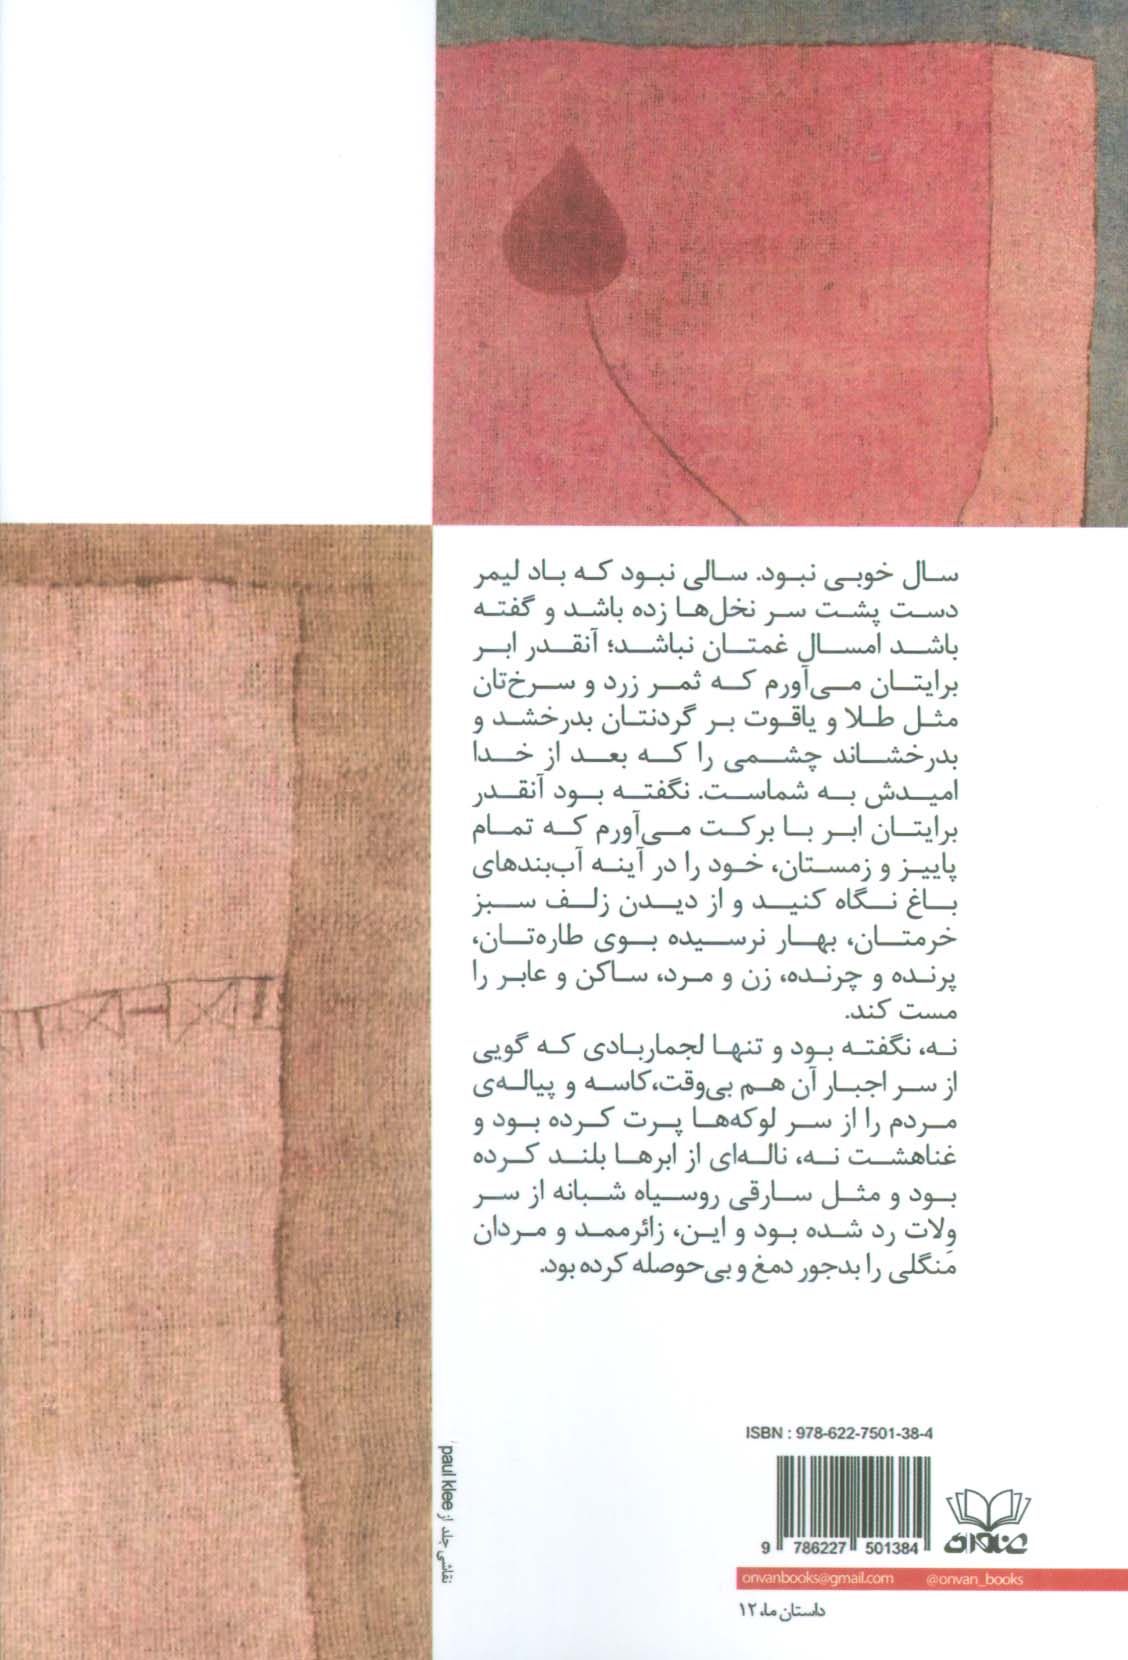 سال خوبی نبود. سالی نبود که باد لیمر
دست پشت سر نخل‌ها زده باشد و گفته
باشد امسال غمتان نباشد؛ آنقدر ابر
برایتان می‌آورم که ثمر زرد و سرخ‌تان
مثل طلا و یاقوت بر گردنتان بدرخشد و
بدرخشاند چشمی را که بعد از خدا
امیدش به شماست. نگفته بود آنقدر
برایتان ابر با برکت می‌آورم که تمام
پاییز و زمستان، خود را در آینه آب‌بندهای
باغ نگاه کنید و از دیدن زلف سبز
خرمتان، بهار نرسیده بوی طاره‌تان،
پرنده و چرنده، زن و مرد، ساکن و عابر را
مست کند.
نه، نگفته بود و تنها لجمار‌بادی که گویی
از سر اجبار آن هم بی‌وقت،کاسه و پیاله‌ی
مردم را از سر لوکه‌ها پرت کرده بود و
غناهشت نه، ناله‌ای از ابرها بلند کرده
بود و مثل سارقی روسیاه شبانه از سر
ولات رد شده بود و این، زائرممد و مردان
مَنگلی را بدجور دمغ و بی‌حوصله کرده بود.
ISBN : 978-622-7501-38-4
9 786227 501384
عنوان
onvanbooks@gmail.com @onvan_books
داستان ما، ۱۲
نقاشی جلد از paul klee